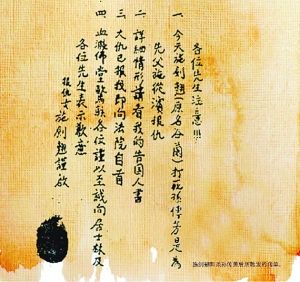 各位先生注意!!!
一、今天施剑翘(原名谷兰)打死孙传芳是为
先父施从滨报仇
二、详细情形请看我的告国人书
三、大仇已报我即向法院自首
四、血溅佛堂惊骇各位谨以至诚向居士林及
各位先生表示歉意
报仇女施剑翘谨启